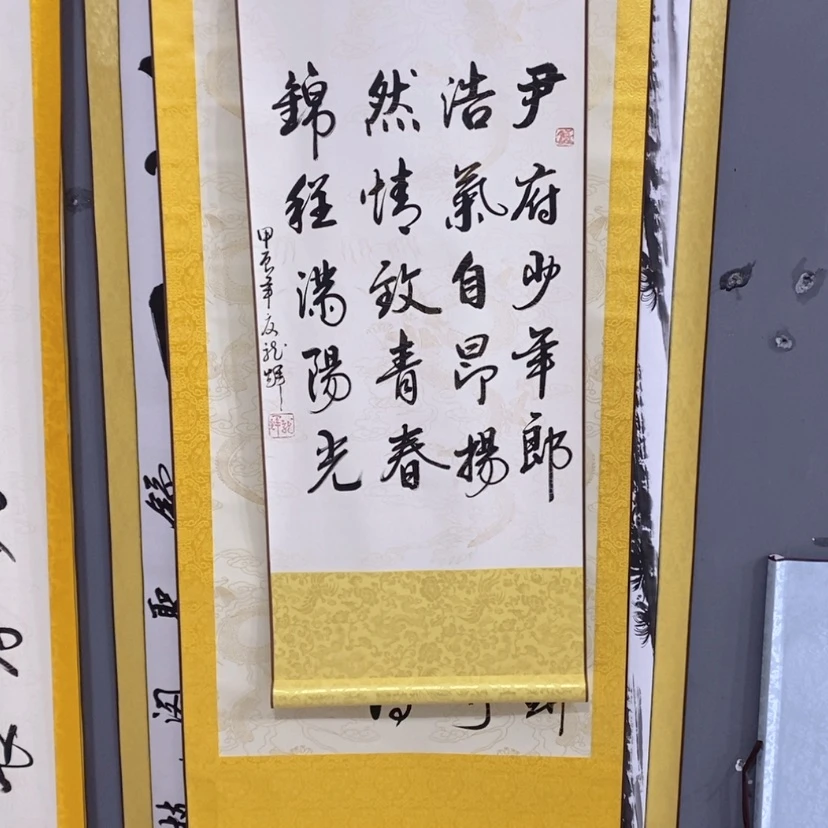 尹府少年郎
浩氣自昂揚
然情致青春
錦程滿陽光
甲辰年夏龍輝